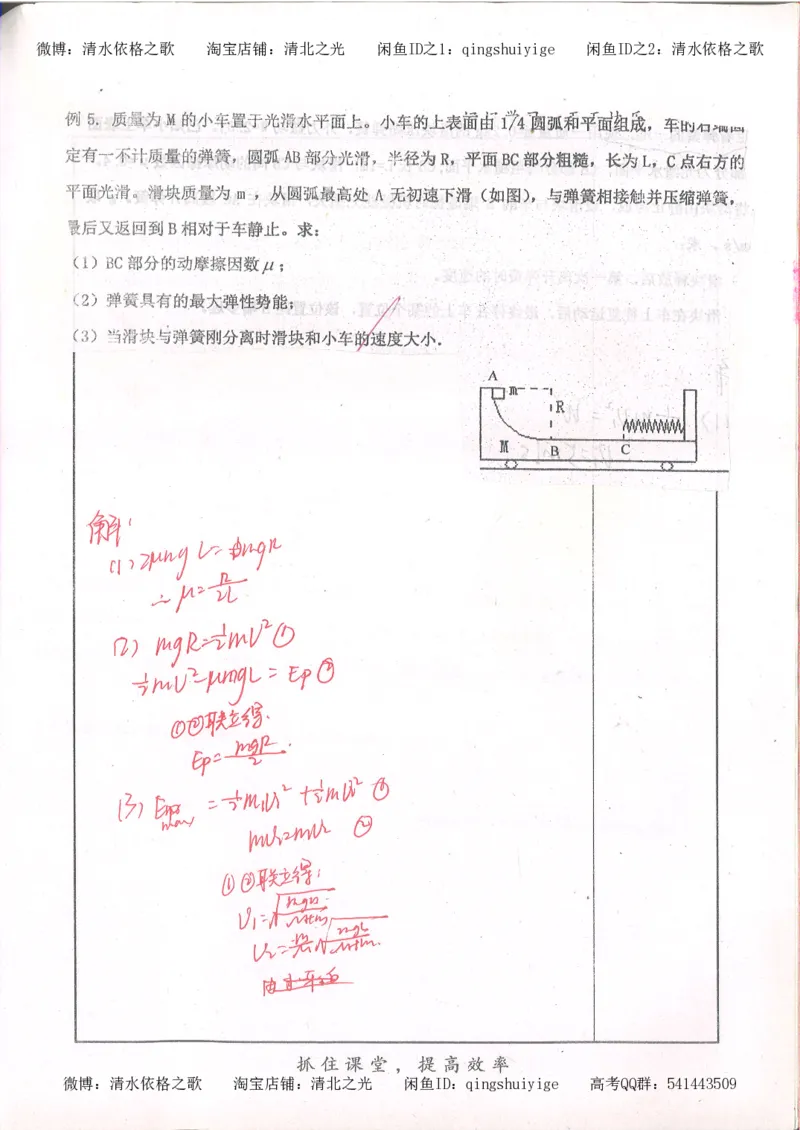 微博：清水依格之歌 淘宝店铺：清北之光 闲鱼ID之1：qingshuiyige 闲鱼ID之2：清水依格之歌
例 5．质量为 M 的小车置于光滑水平面上。小车的上表面由 1/4 圆弧和平面组成，车的右端固
定有一不计质量的弹簧，圆弧 AB 部分光滑，半径为 R，平面 BC 部分粗糙，长为 L，C 点右方的
平面光滑。滑块质量为 m ，从圆弧最高处 A 无初速下滑（如图），与弹簧相接触并压缩弹簧，
最后又返回到 B 相对于车静止。求：
（1）BC 部分的动摩擦因数 μ ；
（2）弹簧具有的最大弹性势能；
（3）当滑块与弹簧刚分离时滑块和小车的速度大小．
A
m
R
M
B
C
解：
(1) 2μmgL=mgR
∴ μ=R/2L
(2) mgR=½mV² ①
½mV²-μmgL=Ep ②
①②联立得：
Ep=mgR/2.
(3) Ep max =½mV₁²+½mV₂² ①
mV₁=mV₂ ②
①②联立得：
抓住课堂，提高效率
微博：清水依格之歌 淘宝店铺：清北之光 闲鱼ID：qingshuiyige 高考QQ群：541443509